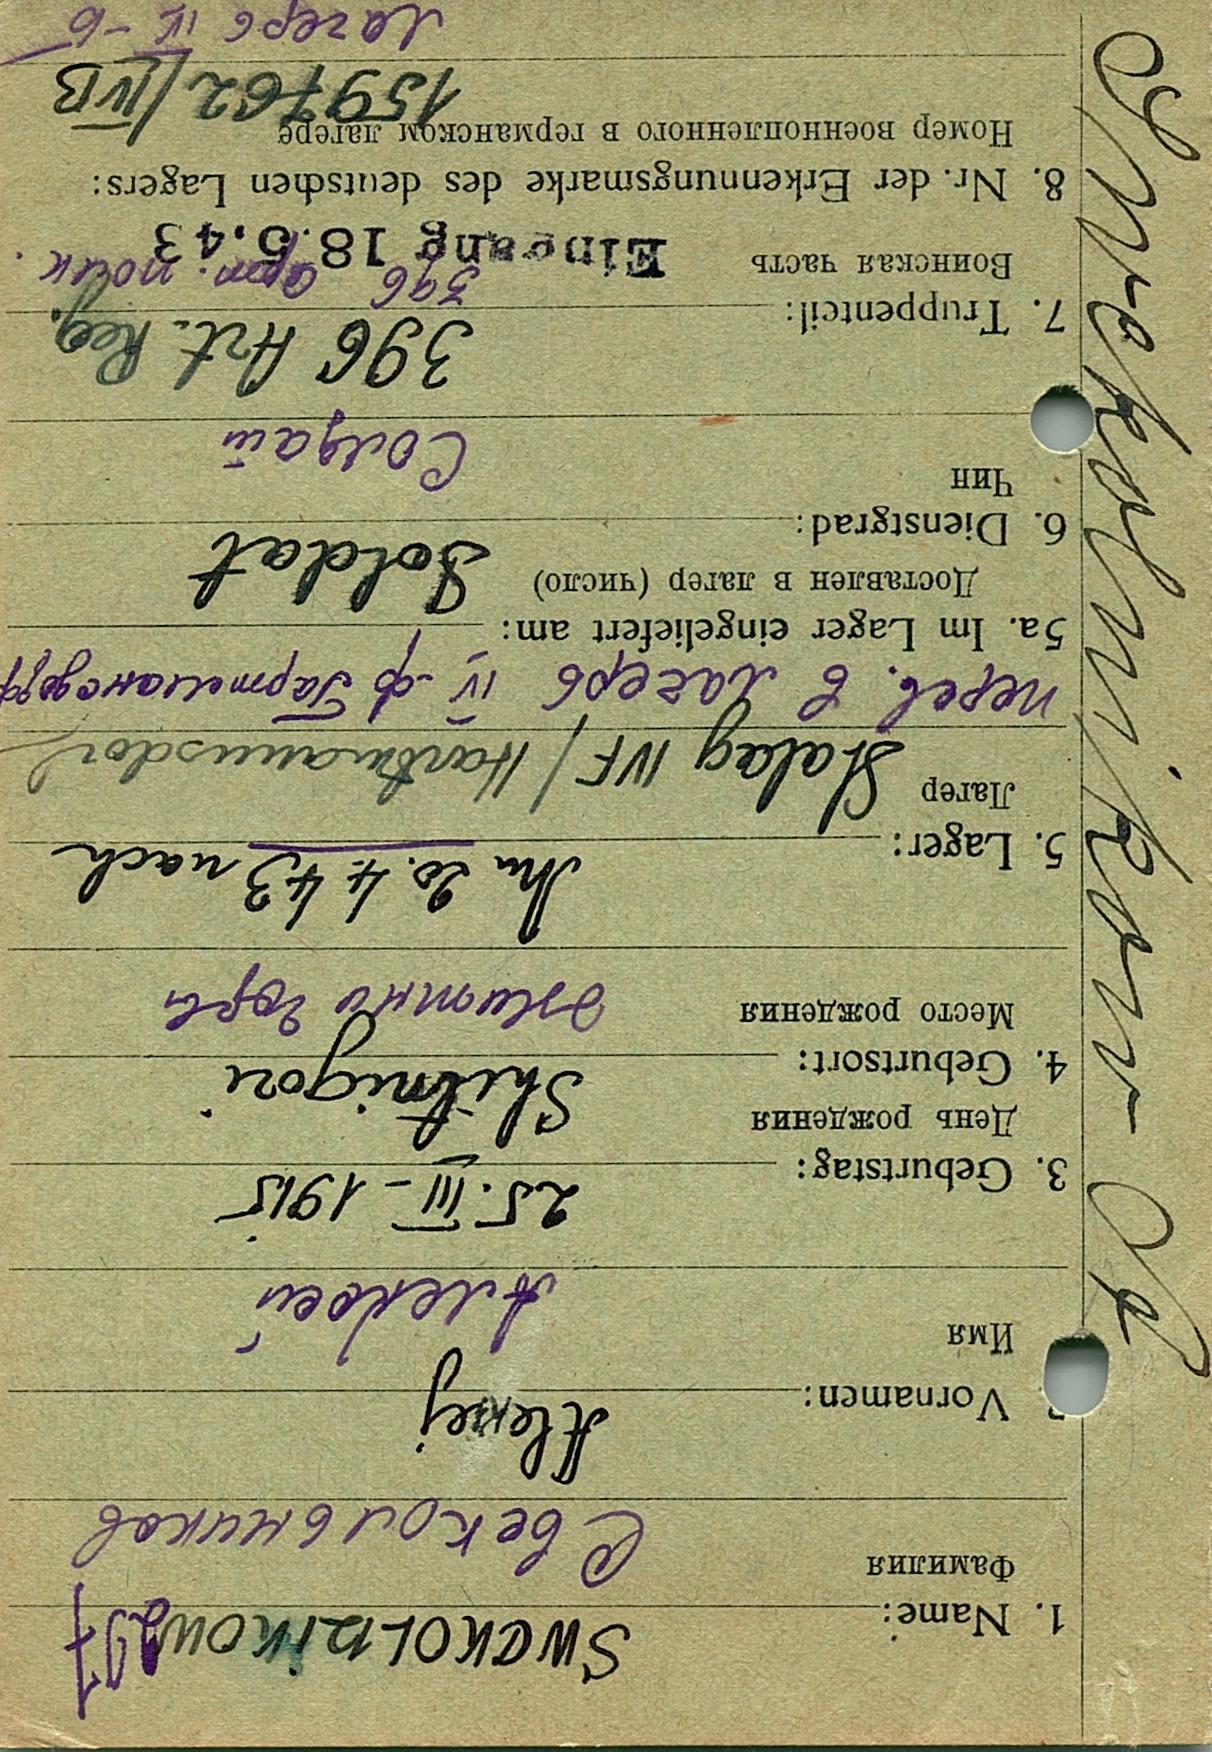 Swekolnikow A
SWEKOLNIKOW 297
1. Name:
Фамилия
Свекольников
Aleksej
Vornamen:
Имя
Алексей
25. III – 1915
3. Geburtstag:
День рождения
Shitnigori
4. Geburtsort:
Место рождения
Житни горы
Am 20.4.43 nach
5. Lager:
Лагер
Stalag IVF / Hartmannsdorf
перев. в лагерь IV-ф Гартмансдорф
5a. Im Lager eingeliefert am:
Доставлен в лагер (число)
Soldat
6. Dienstgrad:
Чин
Солдат
396 Art. Reg.
7. Truppenteil:
Воинская часть
396 арт. полк.
Eingang 18.6.43
8. Nr. der Erkennungsmarke des deutschen Lagers:
Номер военнопленного в германском лагере
159762/IVB
Лагерь IV-б